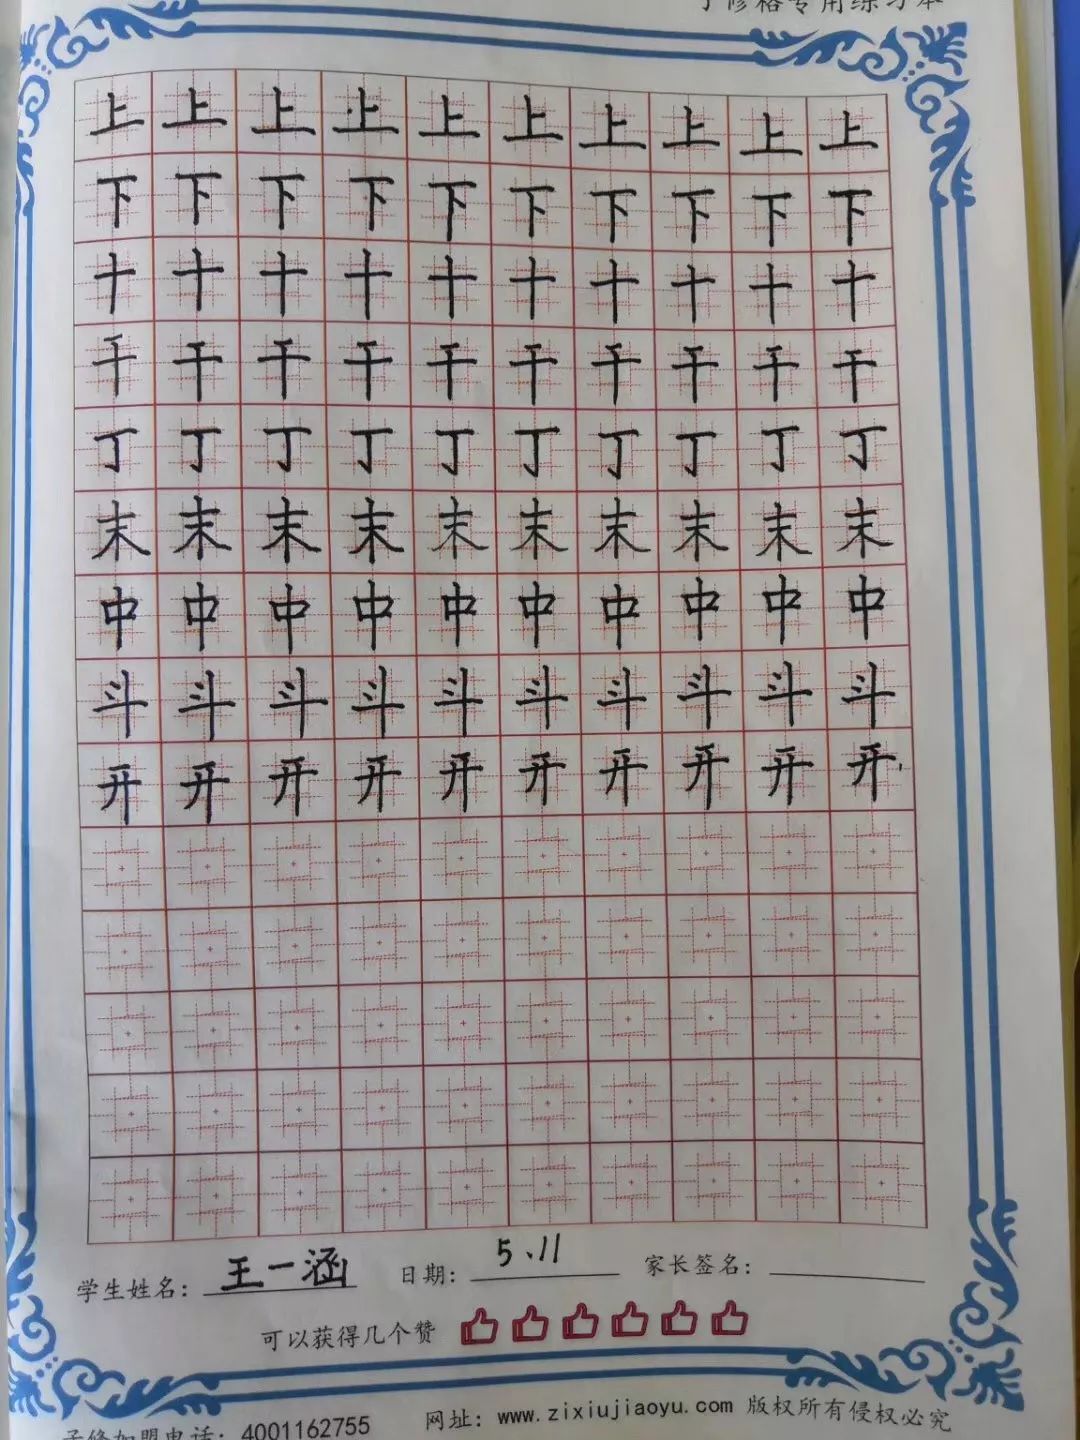 子修格专用练习本
上上上上上上上上上上
下下下下下下下下下下
十十十十十十十十十十
干干干干干干干干干干
丁丁丁丁丁丁丁丁丁丁
末末末末末末末末末末
中中中中中中中中中中
斗斗斗斗斗斗斗斗斗斗
开开开开开开开开开开
学生姓名：王一涵 日期：5、11 家长签名：
可以获得几个赞
子修加盟电话：4001162755 网址：www.zixiujiaoyu.com 版权所有侵权必究